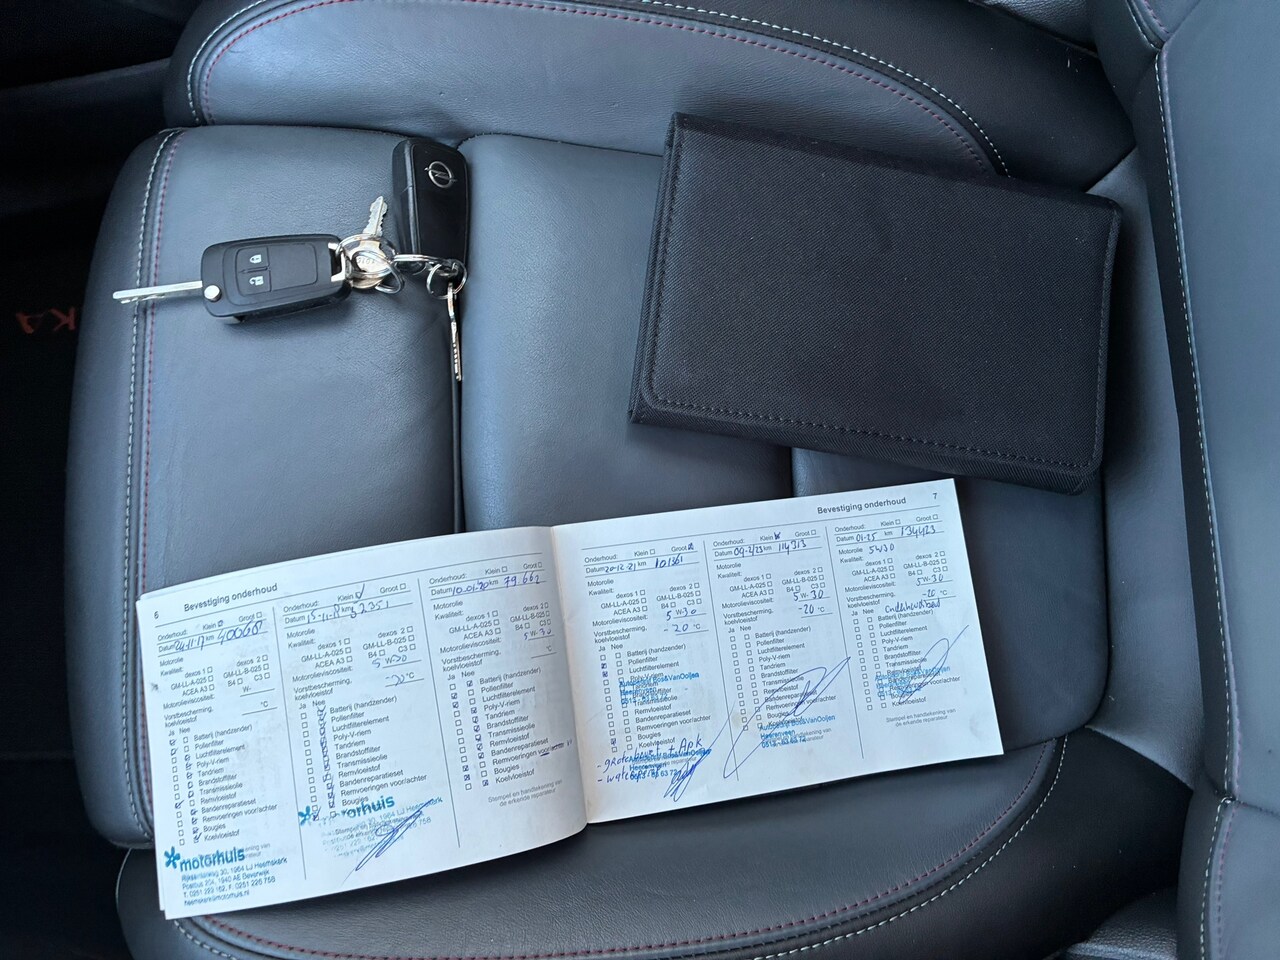 KA
6 Bevestiging onderhoud
Onderhoud: Klein Groot
Datum 24-11-17 km 40068
Motorolie
Kwaliteit:
dexos 1 dexos 2
GM-LL-A-025 GM-LL-B-025
ACEA A3 B4 C3
Motorolieviscositeit: W-
Vorstbescherming, koelvloeistof °C
Ja Nee
Batterij (handzender)
Pollenfilter
Luchtfilterelement
Poly-V-riem
Tandriem
Brandstoffilter
Transmissieolie
Remvloeistof
Bandenreparatieset
Remvoeringen voor/achter
Bougies
Koelvloeistof
motorhuis
Rijksstraatweg 30, 1964 LJ Heemskerk
Postbus 204, 1940 AE Beverwijk
T. 0251 293 162, F. 0251 226 758
heemskerk@motorhuis.nl
Onderhoud: Klein Groot
Datum 15-11-18 km 62351
Motorolie
Kwaliteit:
dexos 1 dexos 2
GM-LL-A-025 GM-LL-B-025
ACEA A3 B4 C3
Motorolieviscositeit: 5 W-30
Vorstbescherming, koelvloeistof -20 °C
Ja Nee
Batterij (handzender)
Pollenfilter
Luchtfilterelement
Poly-V-riem
Tandriem
Brandstoffilter
Transmissieolie
Remvloeistof
Bandenreparatieset
Remvoeringen voor/achter
Bougies
motorhuis
1964 LJ Heemskerk
Onderhoud: Klein Groot
Datum 10-01-20 km 79.662
Motorolie
Kwaliteit:
dexos 1 dexos 2
GM-LL-A-025 GM-LL-B-025
ACEA A3 B4 C3
Motorolieviscositeit: 5 W-30
Vorstbescherming, koelvloeistof °C
Ja Nee
Batterij (handzender)
Pollenfilter
Luchtfilterelement
Poly-V-riem
Tandriem
Brandstoffilter
Transmissieolie
Remvloeistof
Bandenreparatieset
Remvoeringen voor/achter
Bougies
Koelvloeistof
Stempel en handtekening van
de erkende reparateur
Bevestiging onderhoud 7
Onderhoud: Klein Groot
Datum 20-12-21 km 101361
Motorolie
Kwaliteit:
dexos 1 dexos 2
GM-LL-A-025 GM-LL-B-025
ACEA A3 B4 C3
Motorolieviscositeit: 5 W-30
Vorstbescherming, koelvloeistof -20 °C
Ja Nee
Batterij (handzender)
Pollenfilter
Luchtfilterelement
Poly-V-riem
Autobedrijf Bos&VanOoijen
Heerenveen
Transmissieolie
Remvloeistof
Bandenreparatieset
Remvoeringen voor/achter
Bougies
Koelvloeistof
- grote beurt + Apk
Onderhoud: Klein Groot
Datum 09-2/23 km 114313
Motorolie
Kwaliteit:
dexos 1 dexos 2
GM-LL-A-025 GM-LL-B-025
ACEA A3 B4 C3
Motorolieviscositeit: 5 W-30
Vorstbescherming, koelvloeistof -20 °C
Ja Nee
Batterij (handzender)
Pollenfilter
Luchtfilterelement
Poly-V-riem
Tandriem
Brandstoffilter
Transmissieolie
Remvloeistof
Bandenreparatieset
Remvoeringen voor/achter
Bougies
Koelvloeistof
Autobedrijf Bos&VanOoijen
Heerenveen
Onderhoud: Klein Groot
Datum 01-25 km 134423
Motorolie 5W30
Kwaliteit:
dexos 1 dexos 2
GM-LL-A-025 GM-LL-B-025
ACEA A3 B4 C3
Motorolieviscositeit: 5W-30
Vorstbescherming, koelvloeistof -20 °C
Ja Nee
Batterij (handzender)
Pollenfilter
Luchtfilterelement
Poly-V-riem
Tandriem
Brandstoffilter
Transmissieolie
Remvoeringen voor/achter
Koelvloeistof
Stempel en handtekening van
de erkende reparateur